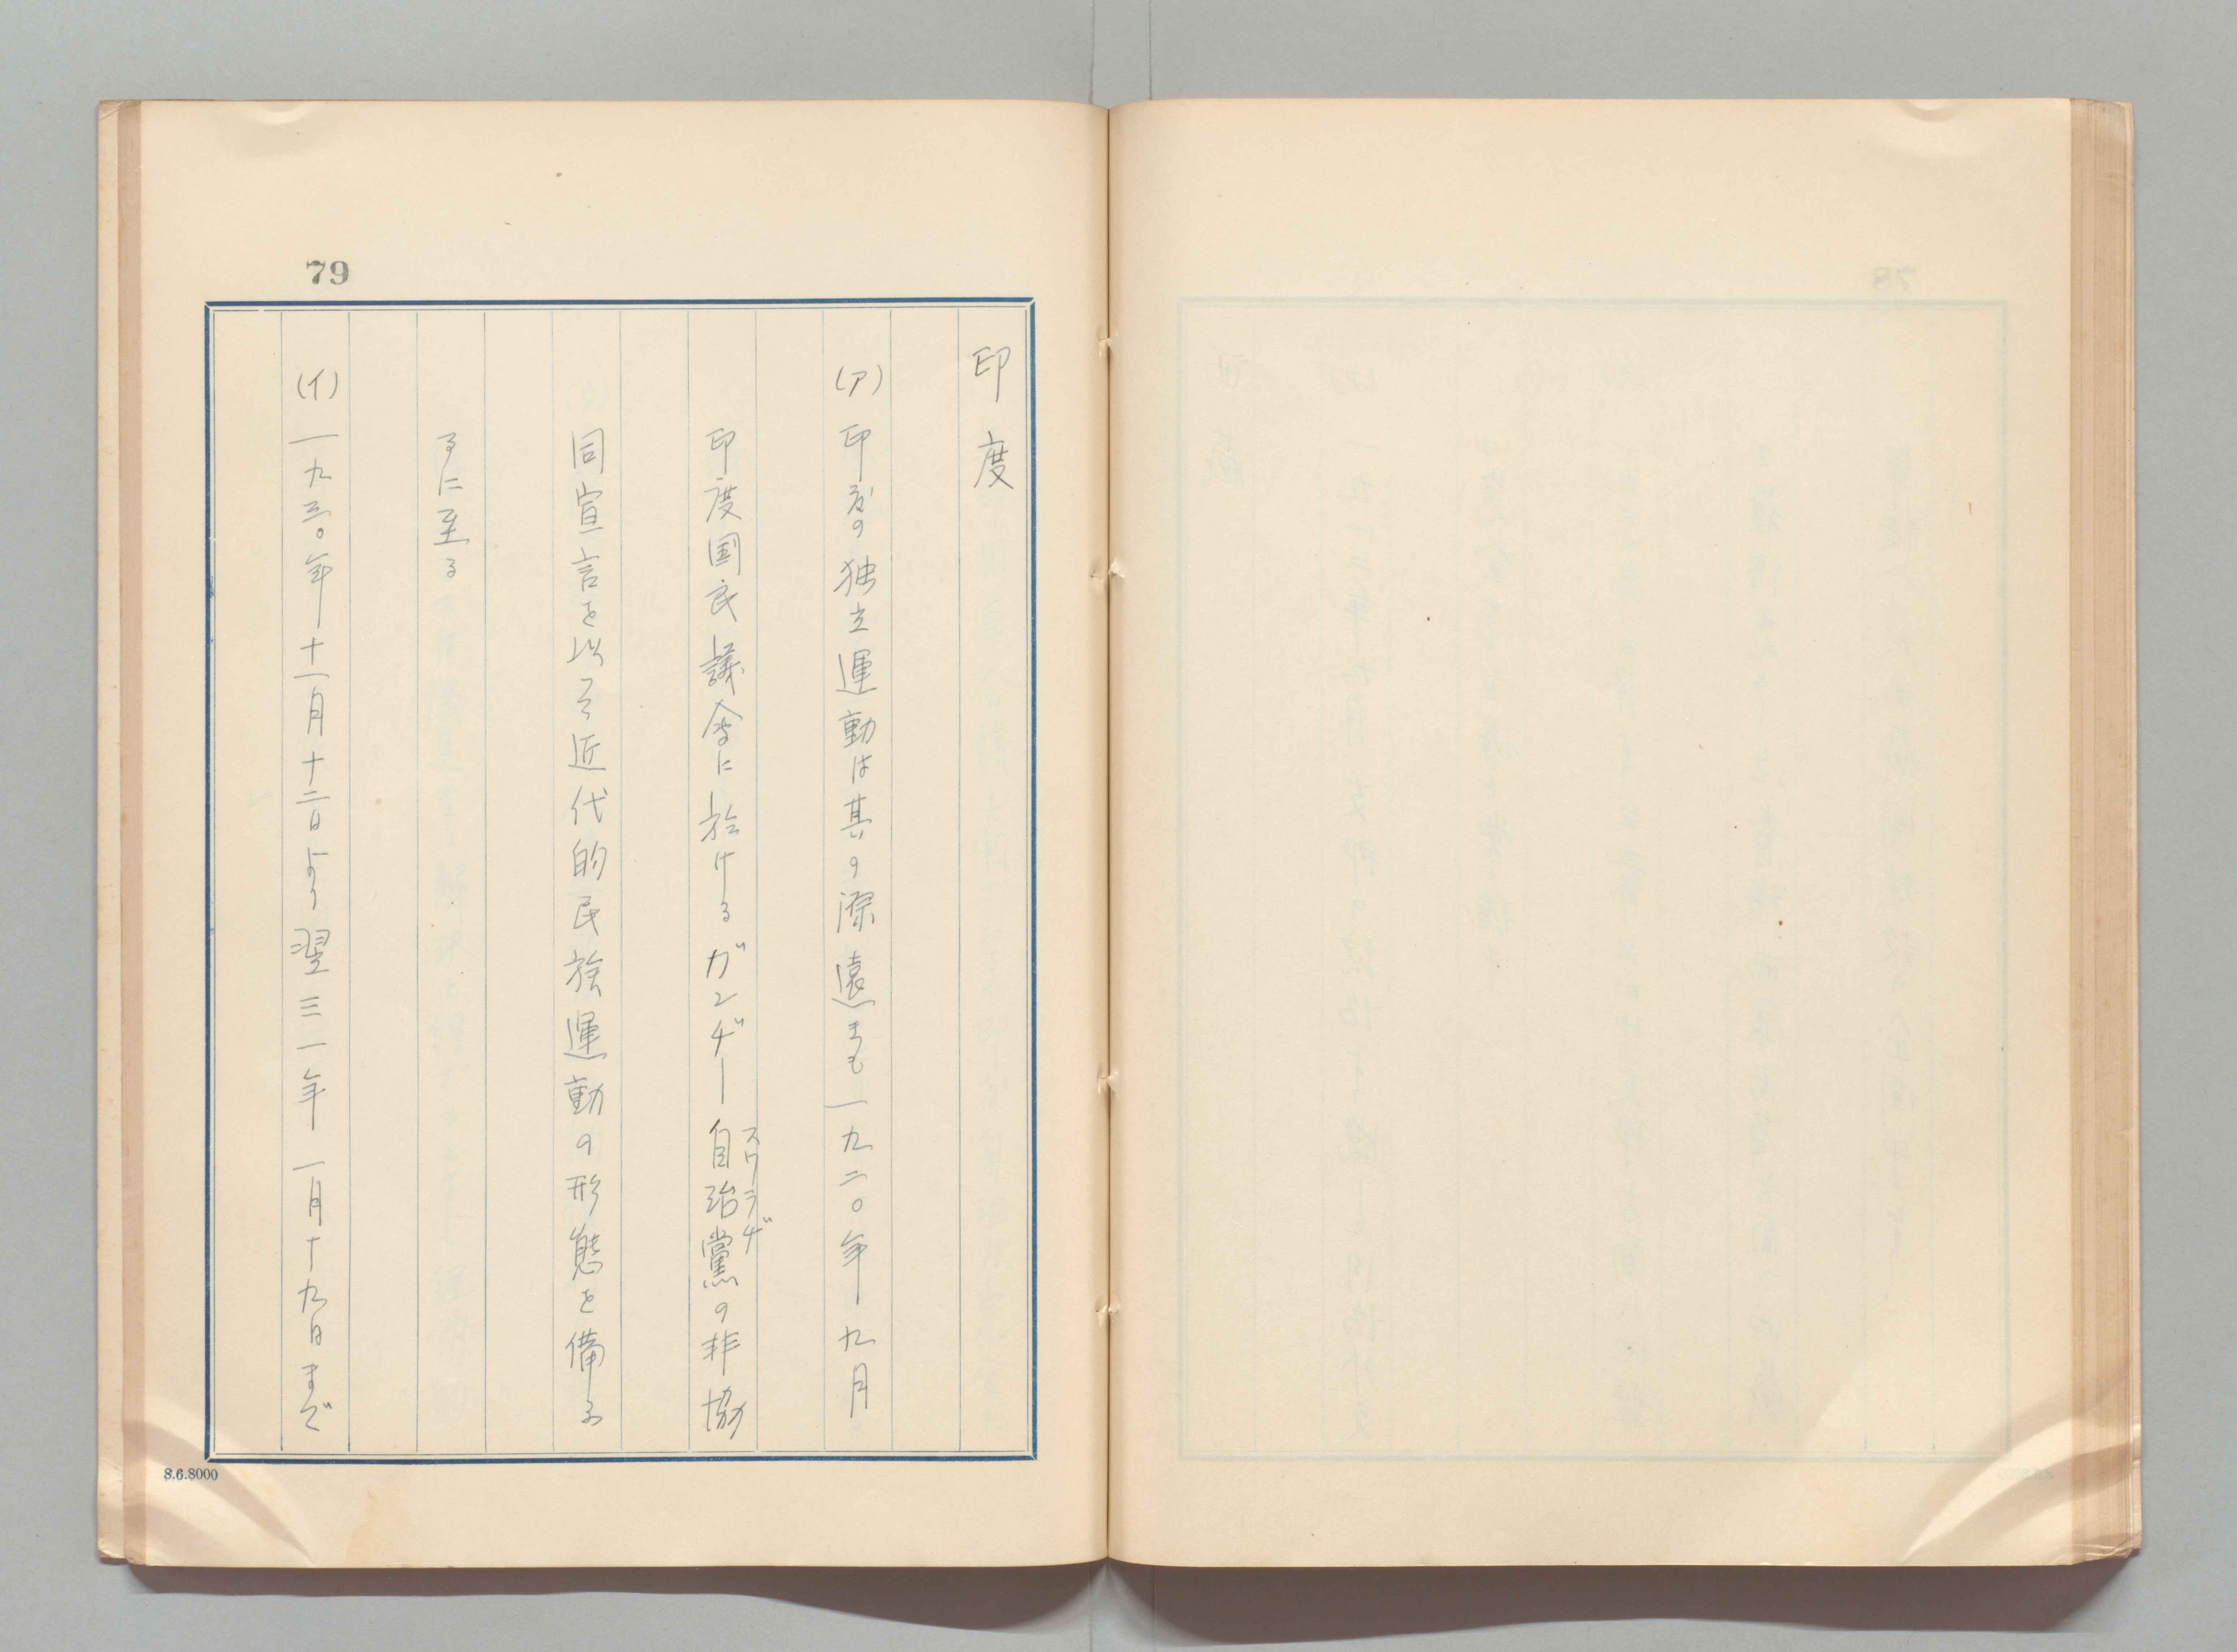 79
印度
(ア) 印度の独立運動は其の深遠きも一九二〇年九月
印度国民議会に於けるガンヂー自治黨の非協
スワラヂ
同宣言を以て近代的民族運動の形態を備ふ
るに至る
(イ) 一九三〇年十一月十二日より翌三一年一月十九日まで
8.6.8000